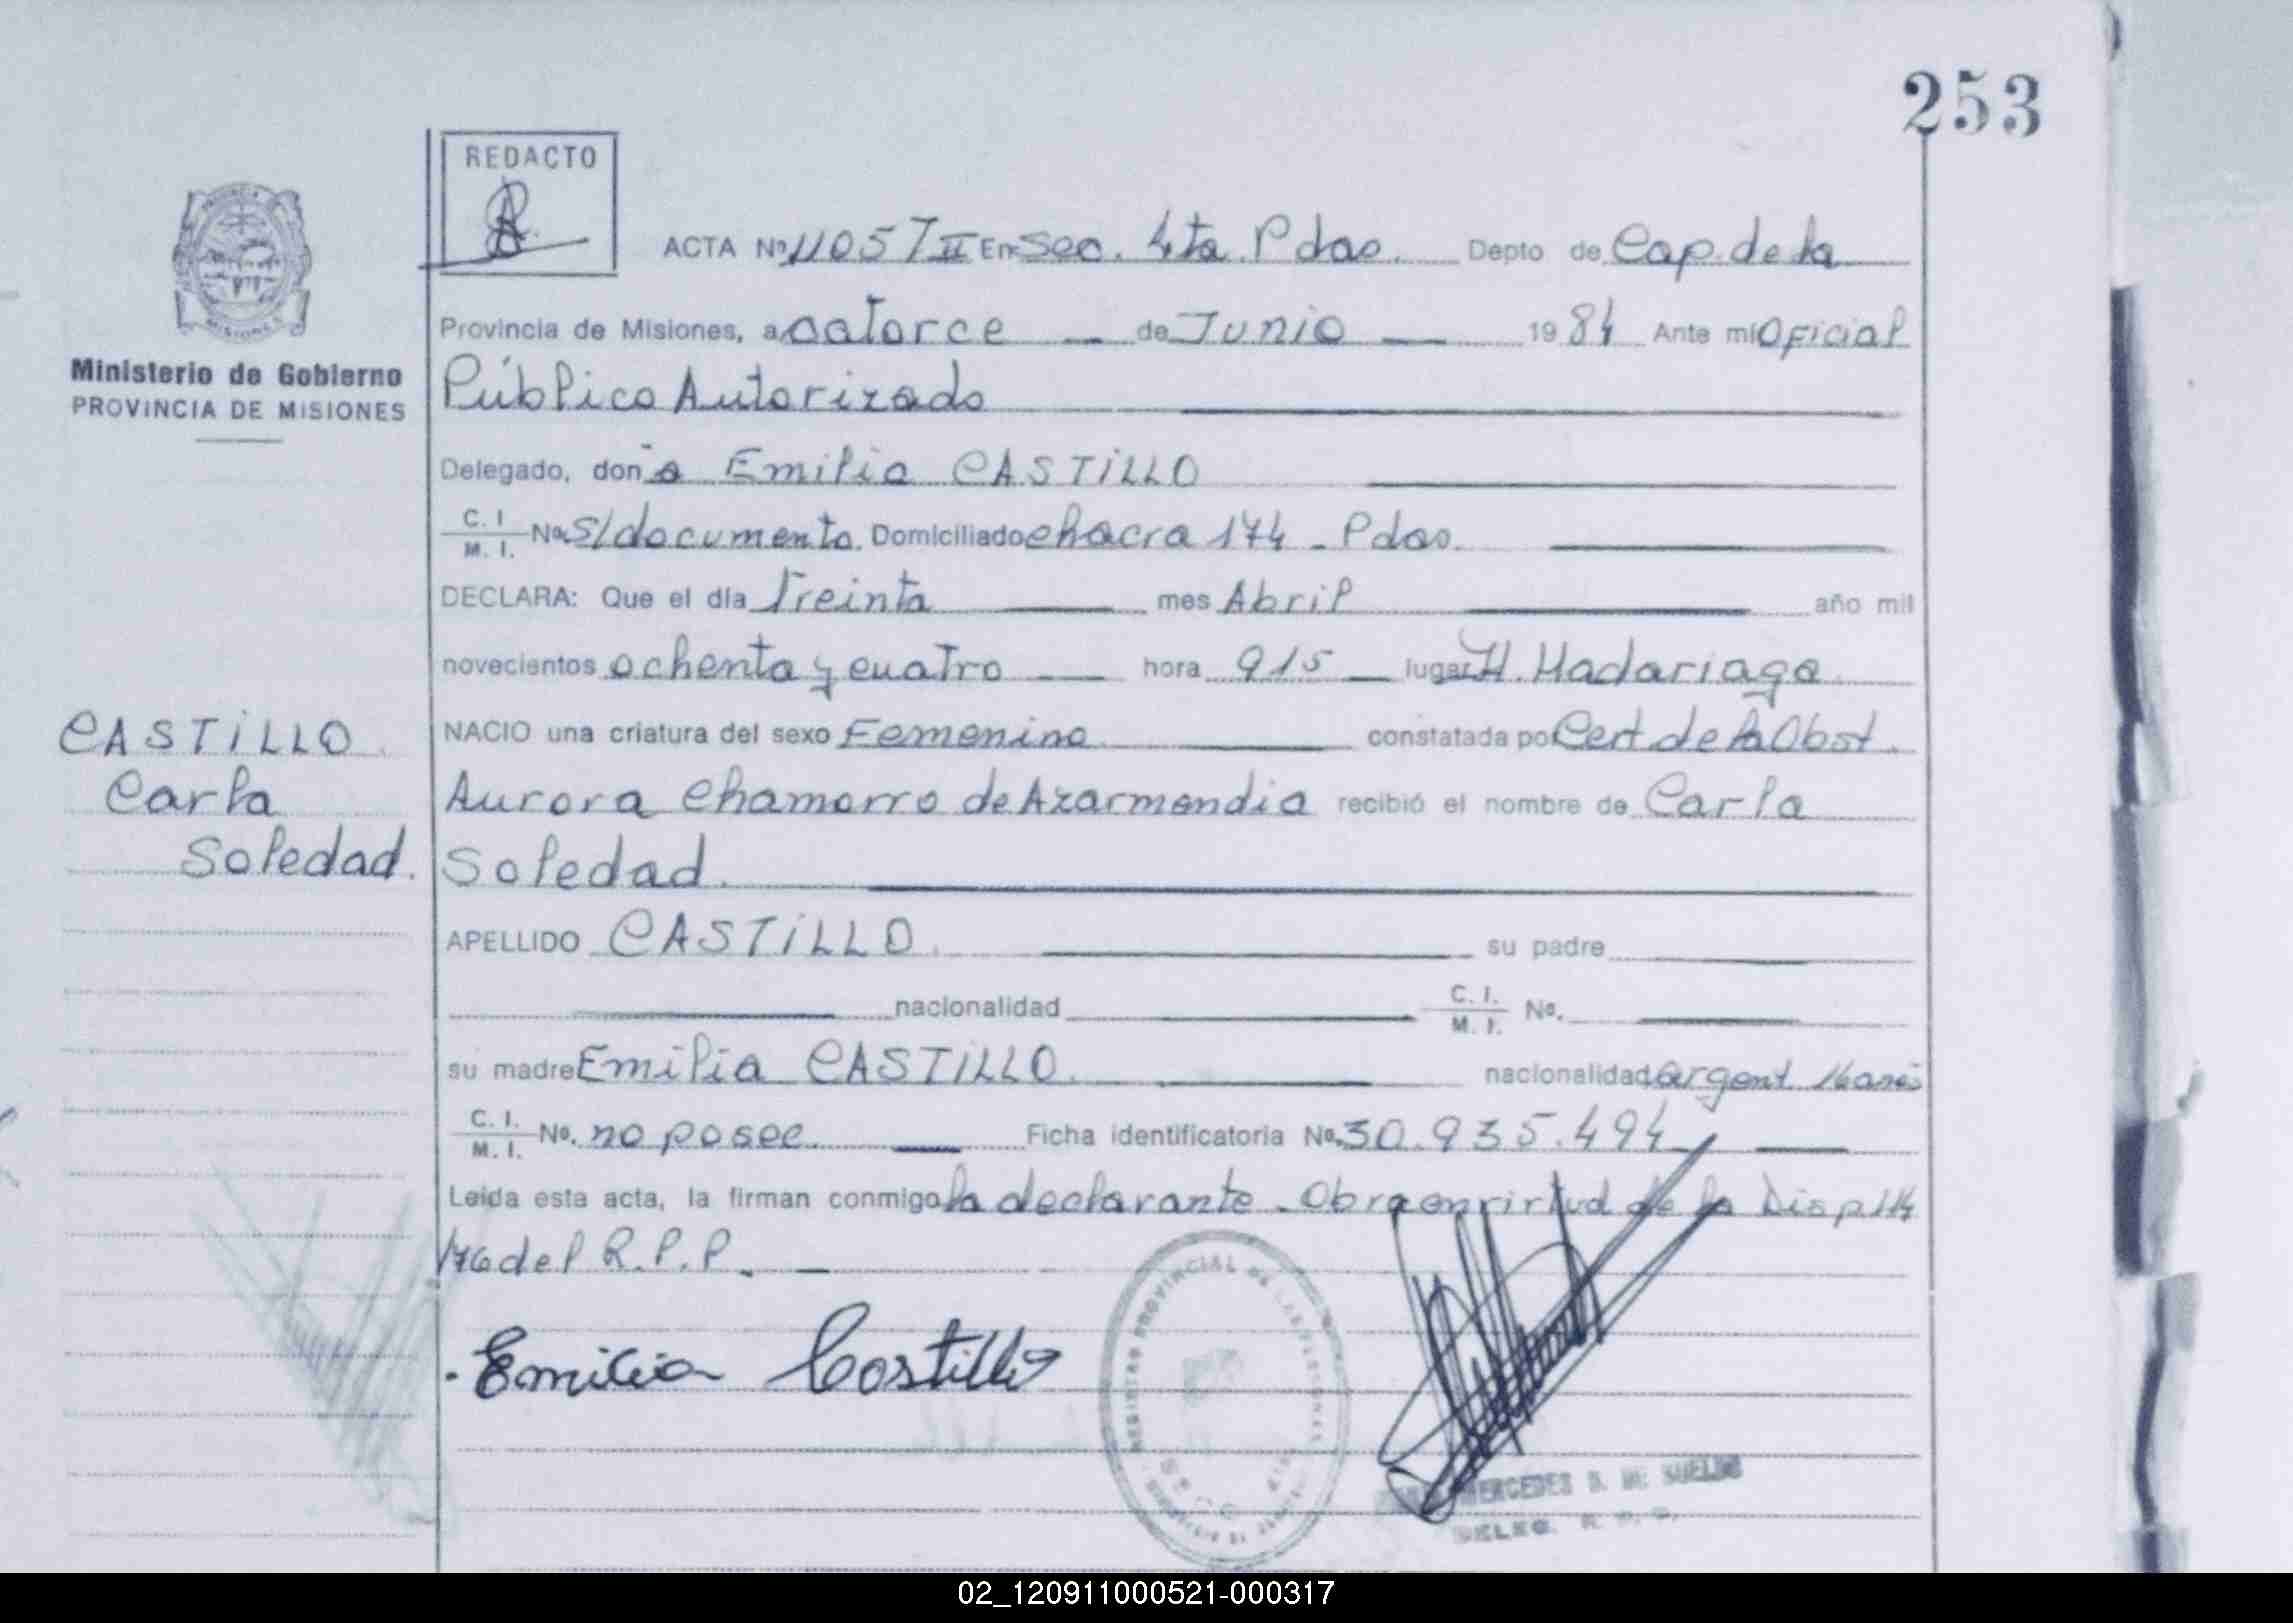 253
REDACTO
ACTA Nº 1105 T II En Sec. 4ta. Pdas. Depto de Cap. de la
Provincia de Misiones, a catorce de Junio 1984 Ante mí Oficial
Público Autorizado
Ministerio de Gobierno
PROVINCIA DE MISIONES
Delegado, doña Emilia CASTiLLO
C. I. / M. I. Nº. s/documento. Domiciliado chacra 174 - Pdas.
DECLARA: Que el día Treinta mes Abril año mil
novecientos ochenta y cuatro hora 915 lugar H. Madariaga.
NACIO una criatura del sexo Femenino constatada por Cert. de la Obst.
Aurora Chamorro de Azarmendia recibió el nombre de Carla
Soledad.
CASTiLLO
Carla
Soledad.
APELLIDO CASTiLLO. su padre
nacionalidad C. I. / M. I. Nº.
su madre Emilia CASTiLLO. nacionalidad argent. 16 años
C. I. / M. I. Nº. no posee. Ficha identificatoria Nº. 30.935.494
Leida esta acta, la firman conmigo la declarante. Obra en virtud de la Disp. 114
/76 del R.P.P.
Emilia Castillo
REGISTRO PROVINCIAL DE LAS PERSONAS
MERCEDES
02_120911000521-000317